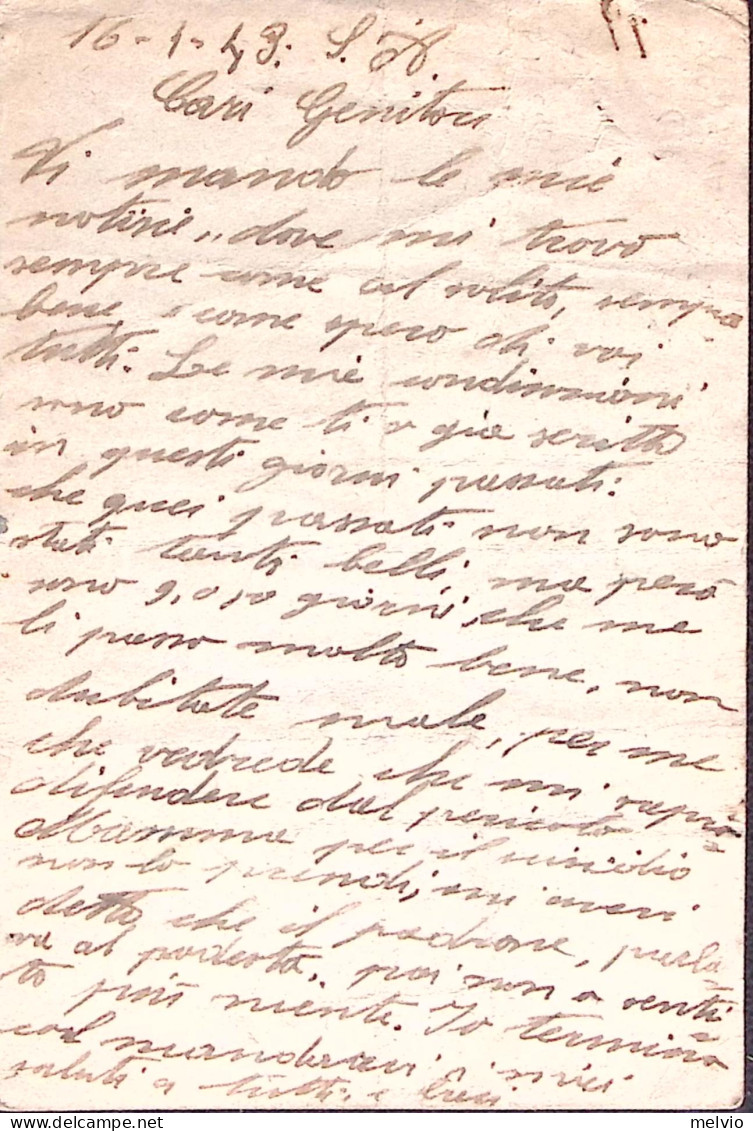 16-1-43. S. A.
Cari Genitori
Vi mando le mie
notizie, dove mi trovo
sempre come al solito, sempre
bene, e come spero di voi
tutti. Le mie condinzioni
sono come ti o gia scritto
in questi giorni passati.
che quei passati non sono
stati tanti belli, ma però
sono 9, o 10 giorni, che me
li passo molto bene, non
dubitate male, per me
che vedrede che mi saprò
difendere dal pericolo
Mamma per il sussidio
non lo prendi, mi avevi
detto che il padrone, parla-
va al podestà, poi non o senti-
to più niente. Io termino
col mandarvi i miei
saluti a tutti e baci
melvio